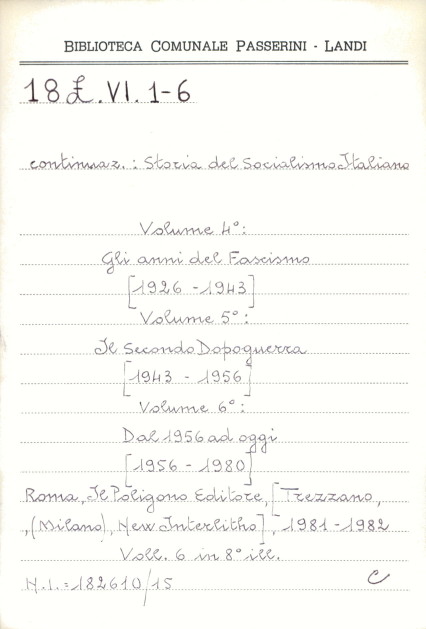 BIBLIOTECA COMUNALE PASSERINI - LANDI
18 £.VI.1-6
continuaz.: Storia del Socialismo Italiano
Volume 4°:
Gli anni del Fascismo
[1926 - 1943]
Volume 5°:
Il Secondo Dopoguerra
[1943 - 1956]
Volume 6°:
Dal 1956 ad oggi
[1956 - 1980]
Roma, Il Poligono Editore, [Trezzano,
,(Milano), New Interlitho], 1981 - 1982
Voll. 6 in 8° ill.
N.I.=182610/15
C